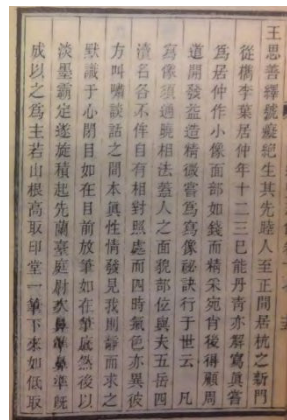 王思善繹號癡絕生其先睦人至正間居杭之新門
從檇李葉居仲年十二三已能丹青亦解寫眞嘗
爲居仲作小像面部如錢而精采宛肖後得顧周
道開發益造精微嘗爲寫像祕訣行于世云凡
寫像須通曉相法葢人之面貌部位與夫五岳四
瀆名各不侔自有相對照處而四時氣色亦異彼
方叫嘯談話之間本眞性情發見我則靜而求之
默識于心閉目如在目前放筆如在筆底然後以
淡墨霸定逐旋積起先蘭臺庭尉次鼻準鼻準既
成以之爲主若山根高取印堂一筆下來如低取